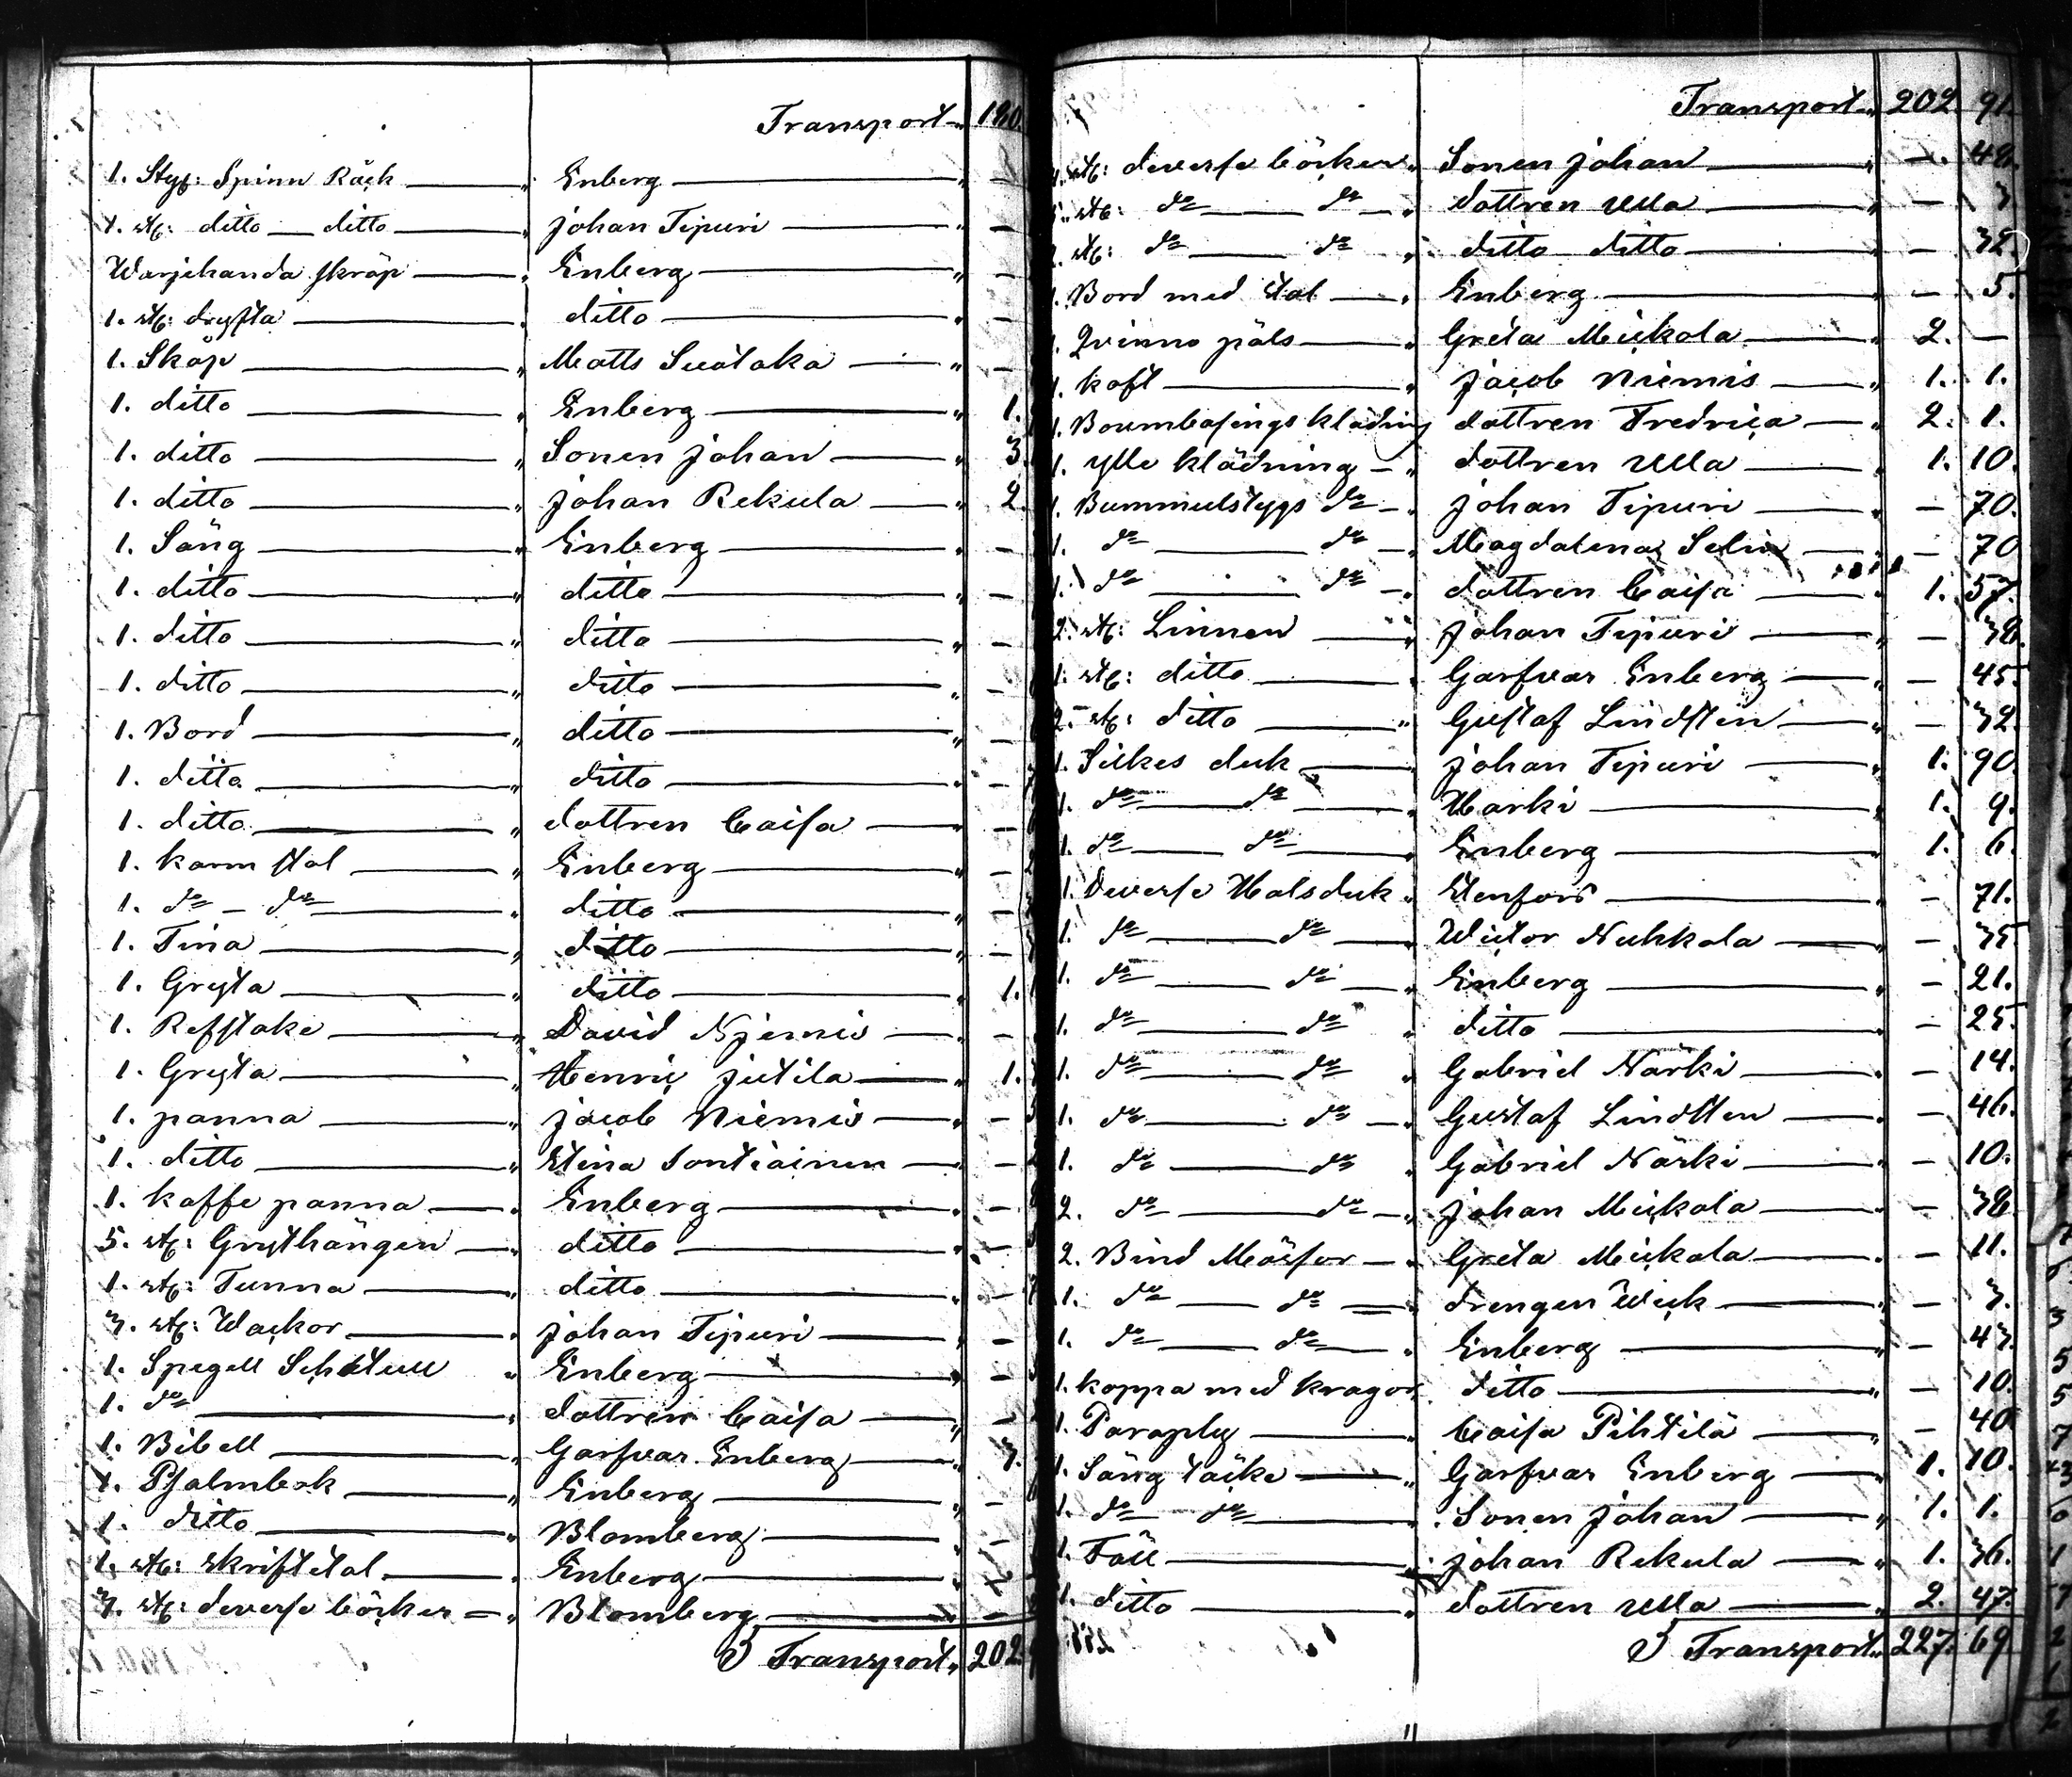 Transport 180.
1. Styc: Spinn Råck Enberg
1. stc: ditto ditto Johan Tipuri
Warjehanda skräp Enberg
1. stc: drysta ditto
1. Skåp Matts Suutaka
1. ditto Enberg 1.
1. ditto Sonen Johan 3.
1. ditto Johan Rekula 2.
1. Säng Enberg
1. ditto ditto
1. ditto ditto
1. ditto ditto
1. Bord ditto
1. ditto ditto
1. ditto dottren Caisa
1. karm stol Enberg
1. do do ditto
1. Tina ditto
1. Gryta ditto 1.
1. Refstake David Njemis
1. Gryta Henric Jutila 1.
1. panna Jacob Niemis
1. ditto Stina Sontiainen
1. kaffe panna Enberg
5. stc: Grythängen ditto
1. stc: Tunna ditto
3. stc: Wackor Johan Tipuri
1. Spegell Schatull Enberg
1. do dottren Caisa
1. Bibell Garfvar Enberg 3.
1. Psalmbok Enberg
1. ditto Blomberg
1. stc: skriftetal Enberg
3. stc: deverse böcker Blomberg
S Transport 202.
Transport 202 91.
stc: deverse böcker Sonen Johan — 48.
stc: do do dottren Ulla — 3
stc: do do ditto ditto — 32
1. Bord med stol Enberg — 5.
1. Qvinno päls Greta Mickola 2. —
1. koft Jacob Niemis 1. 1.
1. Boumbasings klädning dottren Fredrica 2. 1.
1. ylle klädning dottren Ulla 1. 10.
1. Bummulstygs do Johan Tipuri — 70.
1. do do Magdalena Selin — 70
1. do do dottren Caisa 1. 57.
2. stc: Linnen Johan Tipuri — 38.
1. stc: ditto Garfvar Enberg — 45.
2. stc: ditto Gustaf Lindsten — 32.
1. Silkes duk Johan Tipuri 1. 90.
1. do do Harki 1. 9.
1. do do Enberg 1. 6.
1. Deverse Halsduk Stenfors — 71.
1. do do Wictor Nuhkola — 35
1. do do Enberg — 21.
1. do do ditto — 25.
1. do do Gabriel Närki — 14.
1. do do Gustaf Lindsten — 46.
1. do do Gabriel Närki — 10.
2. do do Johan Mickola — 38
2. Bind Mössor Greta Mickola — 11.
1. do do drengen Wick — 3.
1. do do Enberg — 43.
1. kappa med kragor ditto — 10.
1. Paraply Caisa Pihtilä — 40
1. Säng täcke Garfvar Enberg 1. 10.
1. do do Sonen Johan 1. 1.
1. Fäll Johan Rekula 1. 36.
1. ditto dottren Ulla 2. 47.
S Transport 227. 69.